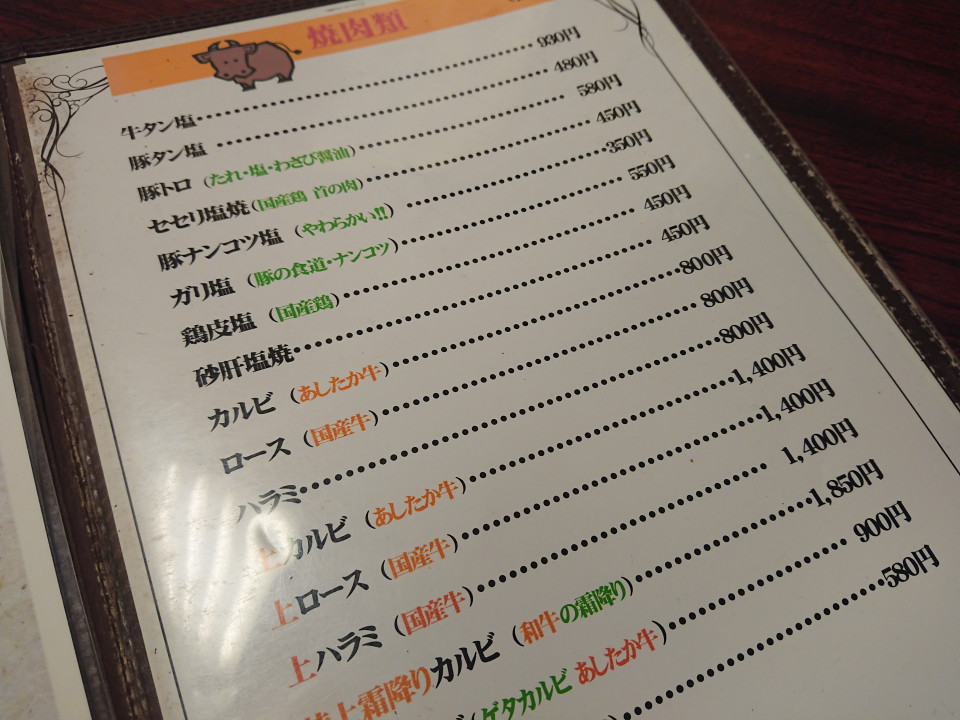 焼肉類
牛タン塩・・・・・・・・・・930円
豚タン塩・・・・・・・・・・480円
豚トロ（たれ・塩・わさび醤油）・・・・・・・・・・580円
セセリ塩焼（国産鶏 首の肉）・・・・・・・・・・450円
豚ナンコツ塩（やわらかい!!）・・・・・・・・・・350円
ガリ塩（豚の食道・ナンコツ）・・・・・・・・・・550円
鶏皮塩（国産鶏）・・・・・・・・・・450円
砂肝塩焼・・・・・・・・・・450円
カルビ（あしたか牛）・・・・・・・・・・800円
ロース（国産牛）・・・・・・・・・・800円
ハラミ・・・・・・・・・・800円
上カルビ（あしたか牛）・・・・・・・・・・1,400円
上ロース（国産牛）・・・・・・・・・・1,400円
上ハラミ（国産牛）・・・・・・・・・・1,400円
特上霜降りカルビ（和牛の霜降り）・・・・・・・・・・1,850円
（ゲタカルビ あしたか牛）・・・・・・・・・・900円
・・・・・・・・・・580円